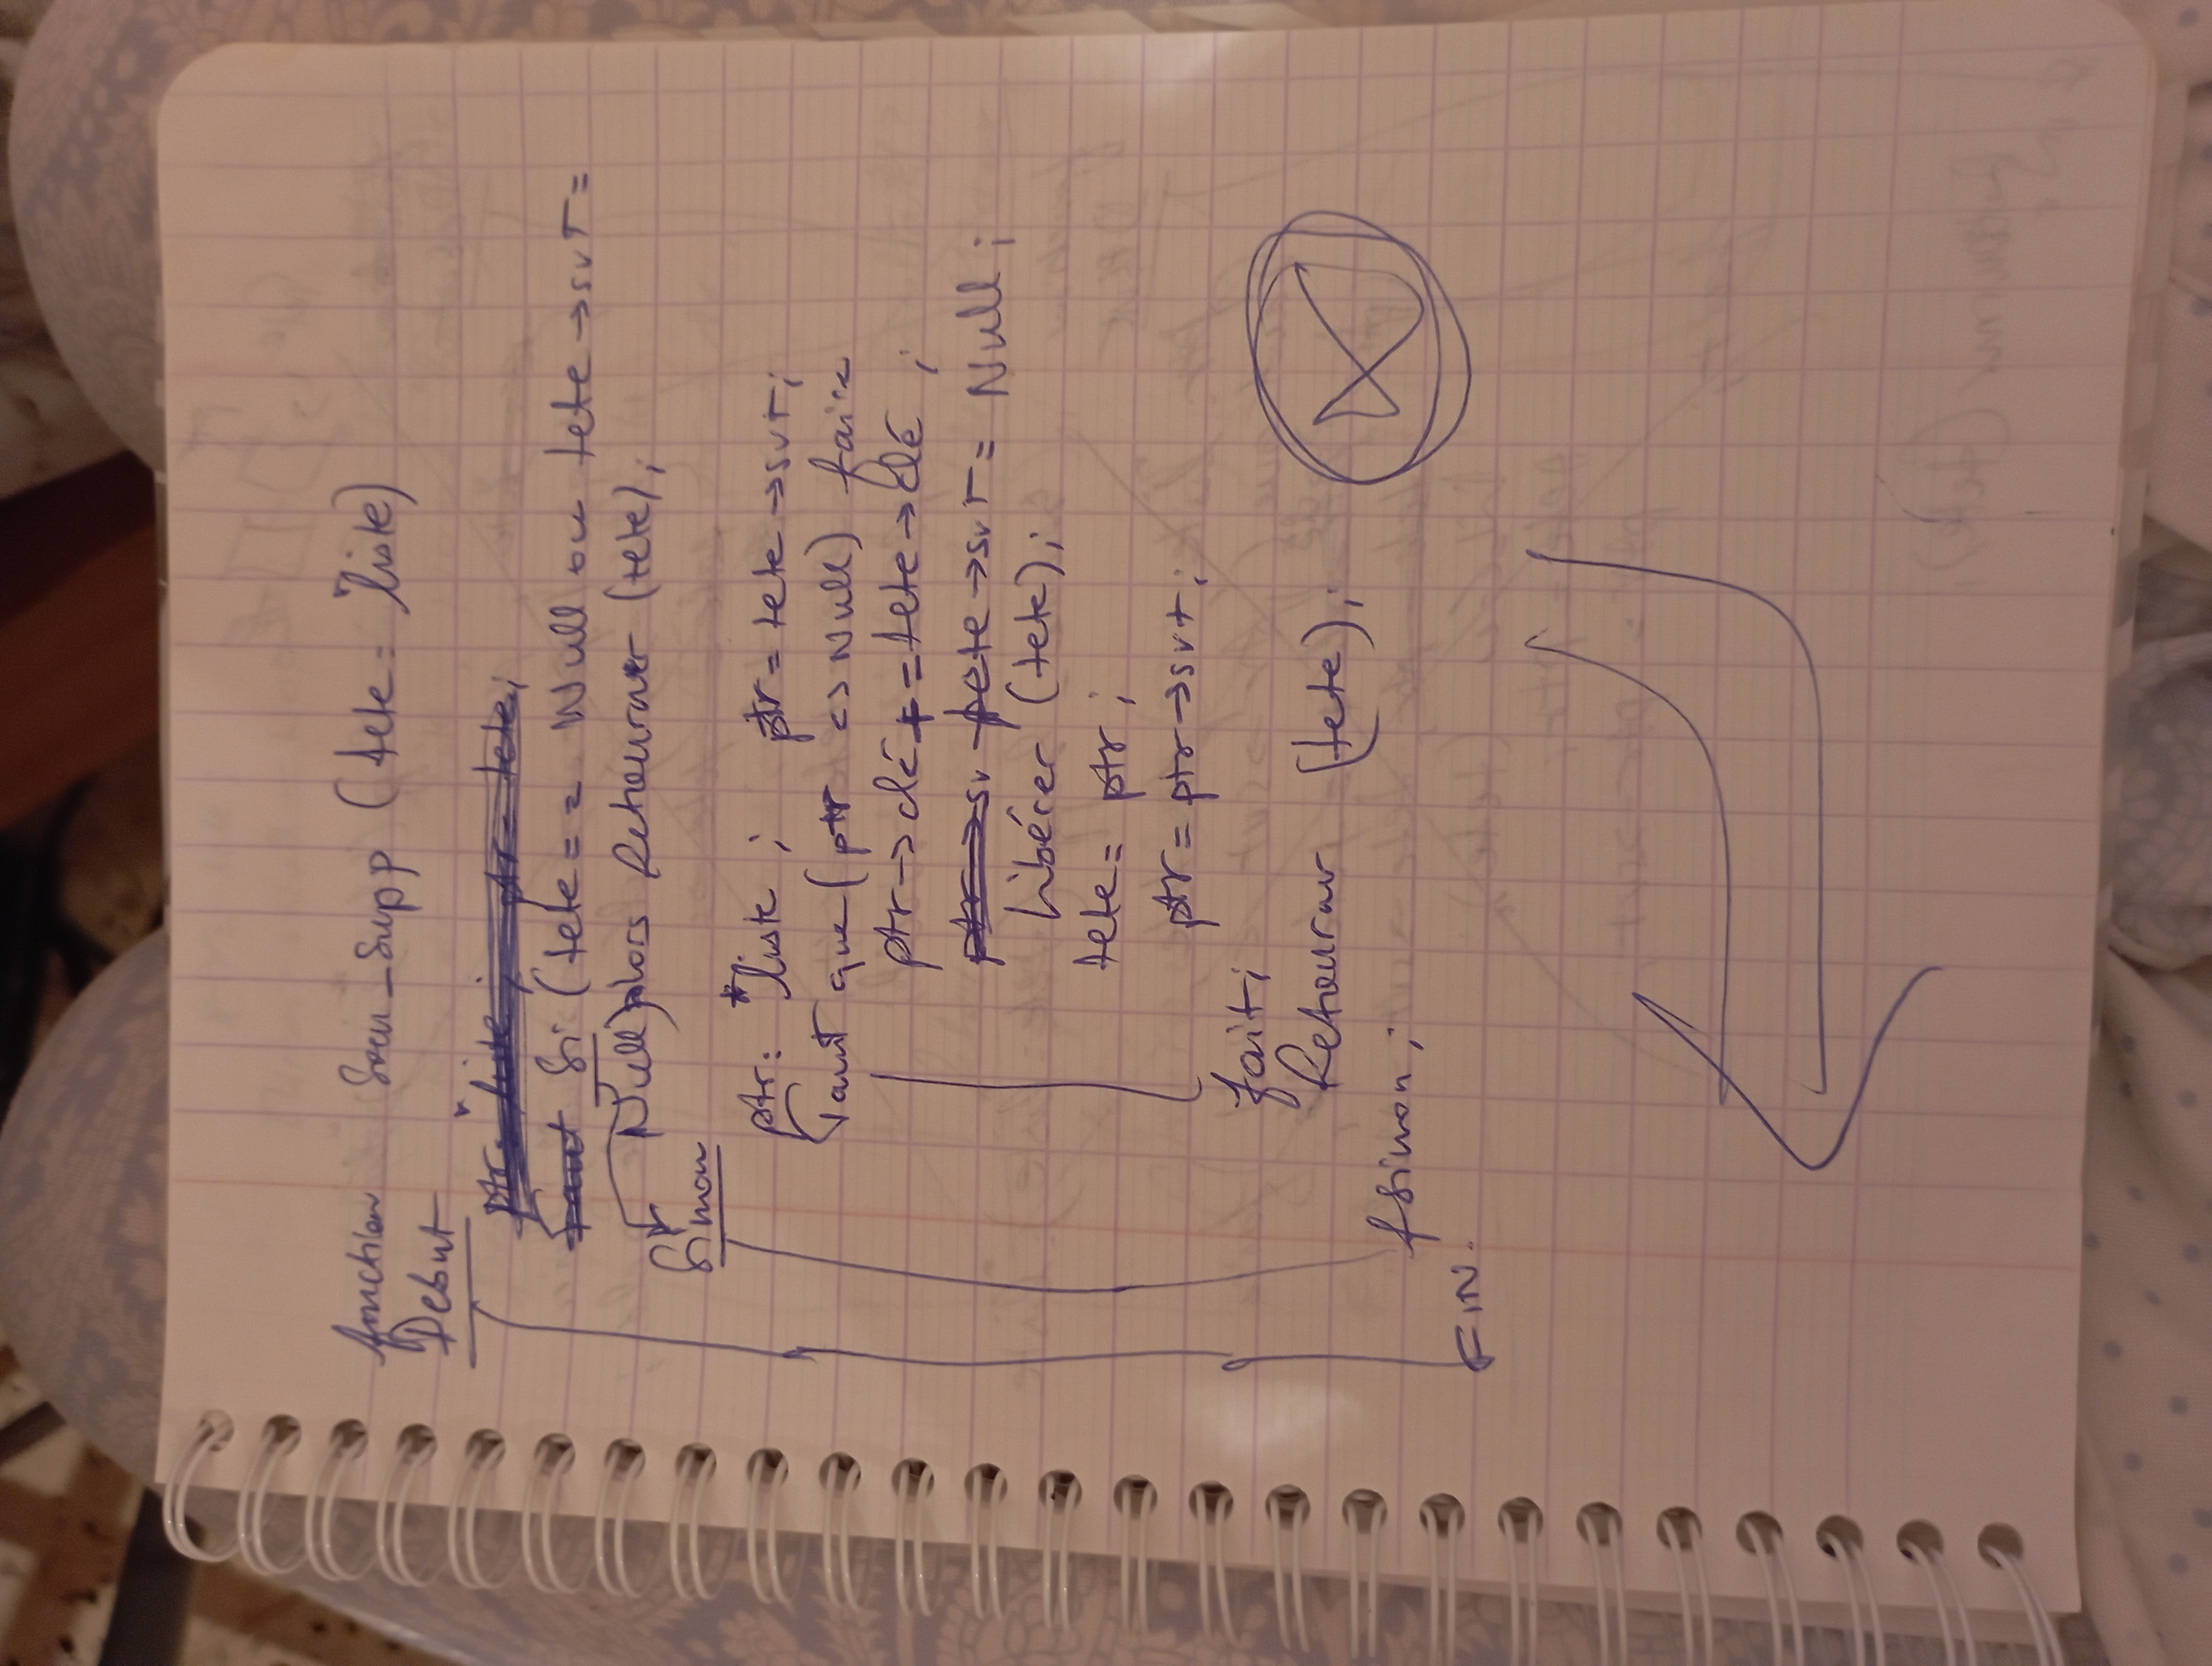 fonction Som_Supp (tete: *liste)
Debut
ptr: *liste; ptr = tete;
Si (tete == Null ou tete → svt =
Null) alors Retourner (tete);
Sinon
ptr: *liste; ptr = tete → svt;
Tant que (ptr <> Null) faire
ptr → clé += tete → clé;
tete → svt = Null;
libérer (tete);
tete = ptr;
ptr = ptr → svt;
fait;
Retourner (tete);
fsinon;
FIN.